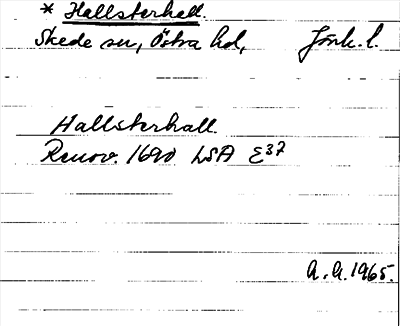 * Hallsterhall.
Skede sn, Östra hd, Jönk. l.
Hallsterhall
Renov. 1690 LSA E37
A. A. 1965.